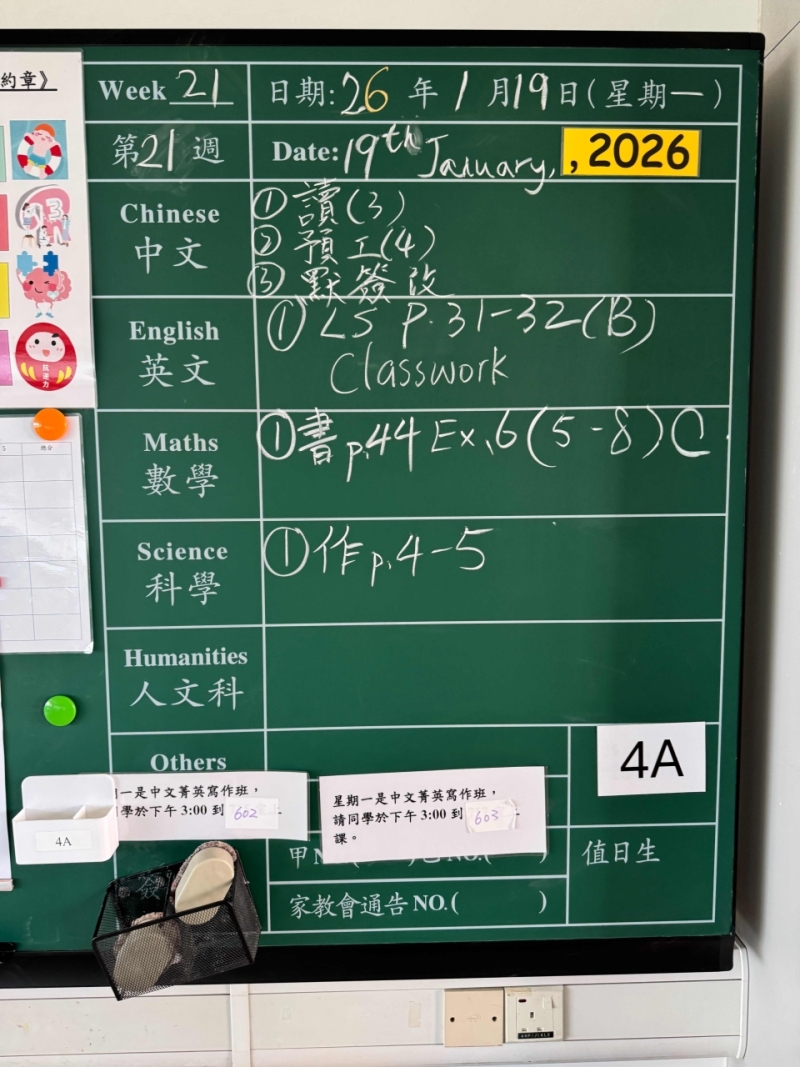 約章》
Week 21
日期: 26 年 1 月 19 日 (星期一)
第 21 週
Date: 19th January, , 2026
Chinese
中文
① 讀(3)
② 預工(4)
③ 默簽改
English
英文
① LS P.31-32(B)
Classwork
Maths
數學
① 書 p.44 Ex.6(5-8) C
Science
科學
① 作 p.4-5
Humanities
人文科
Others
4A
一是中文菁英寫作班，
學於下午 3:00 到 602
4A
星期一是中文菁英寫作班，
請同學於下午 3:00 到 603
課。
甲
值日生
家教會通告 NO.( )